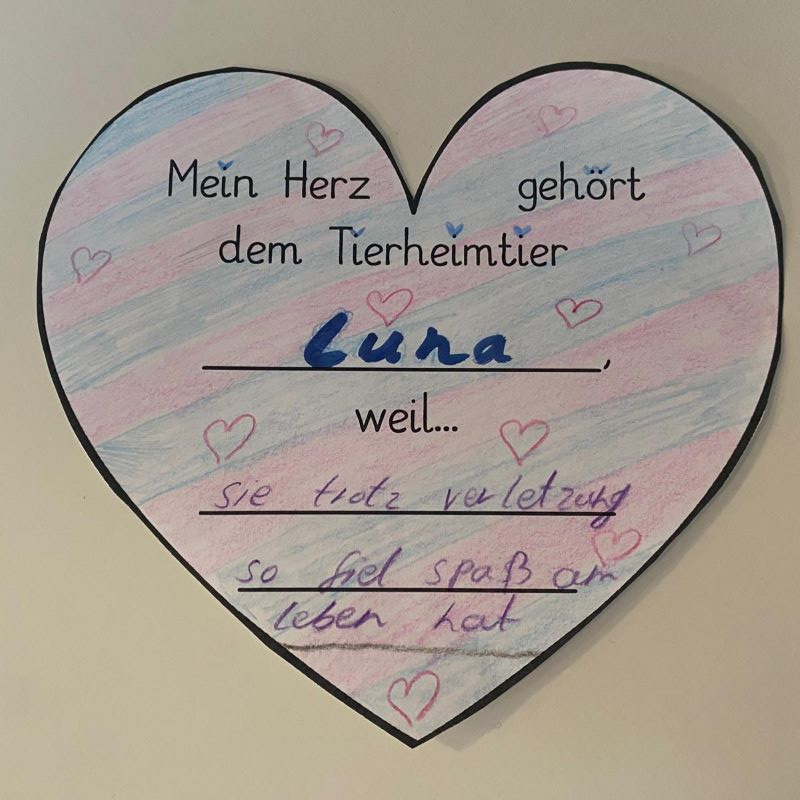 Mein Herz gehört
dem Tierheimtier
Luna,
weil...
sie trotz verletzung
so fiel spaß am
leben hat